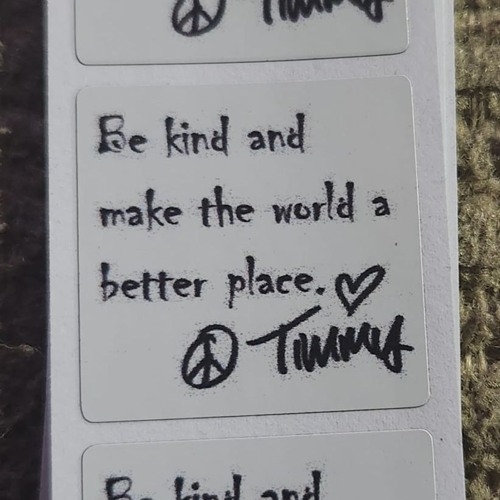 Timmy
Be kind and
make the world a
better place.
Timmy
Be kind and